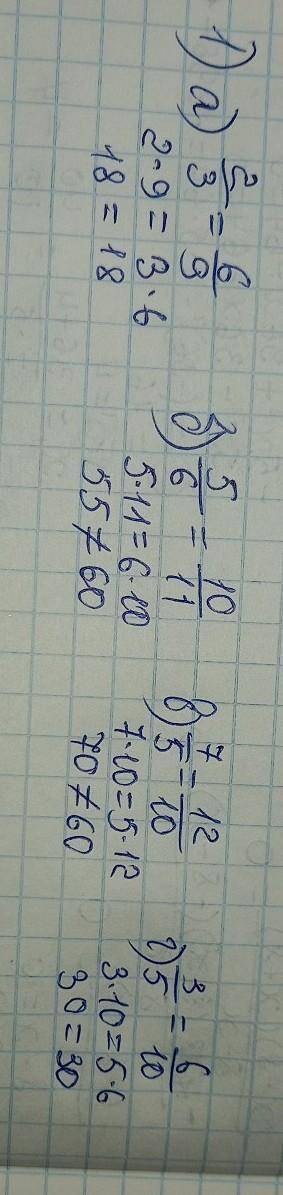 1) а) 2/3 = 6/9
2·9 = 3·6
18 = 18
б) 5/6 = 10/11
5·11 = 6·10
55 ≠ 60
в) 7/5 = 12/10
7·10 = 5·12
70 ≠ 60
г) 3/5 = 6/10
3·10 = 5·6
30 = 30